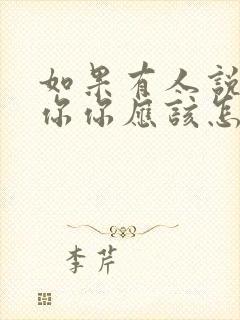 如果有人說
你你應該怎
李芹